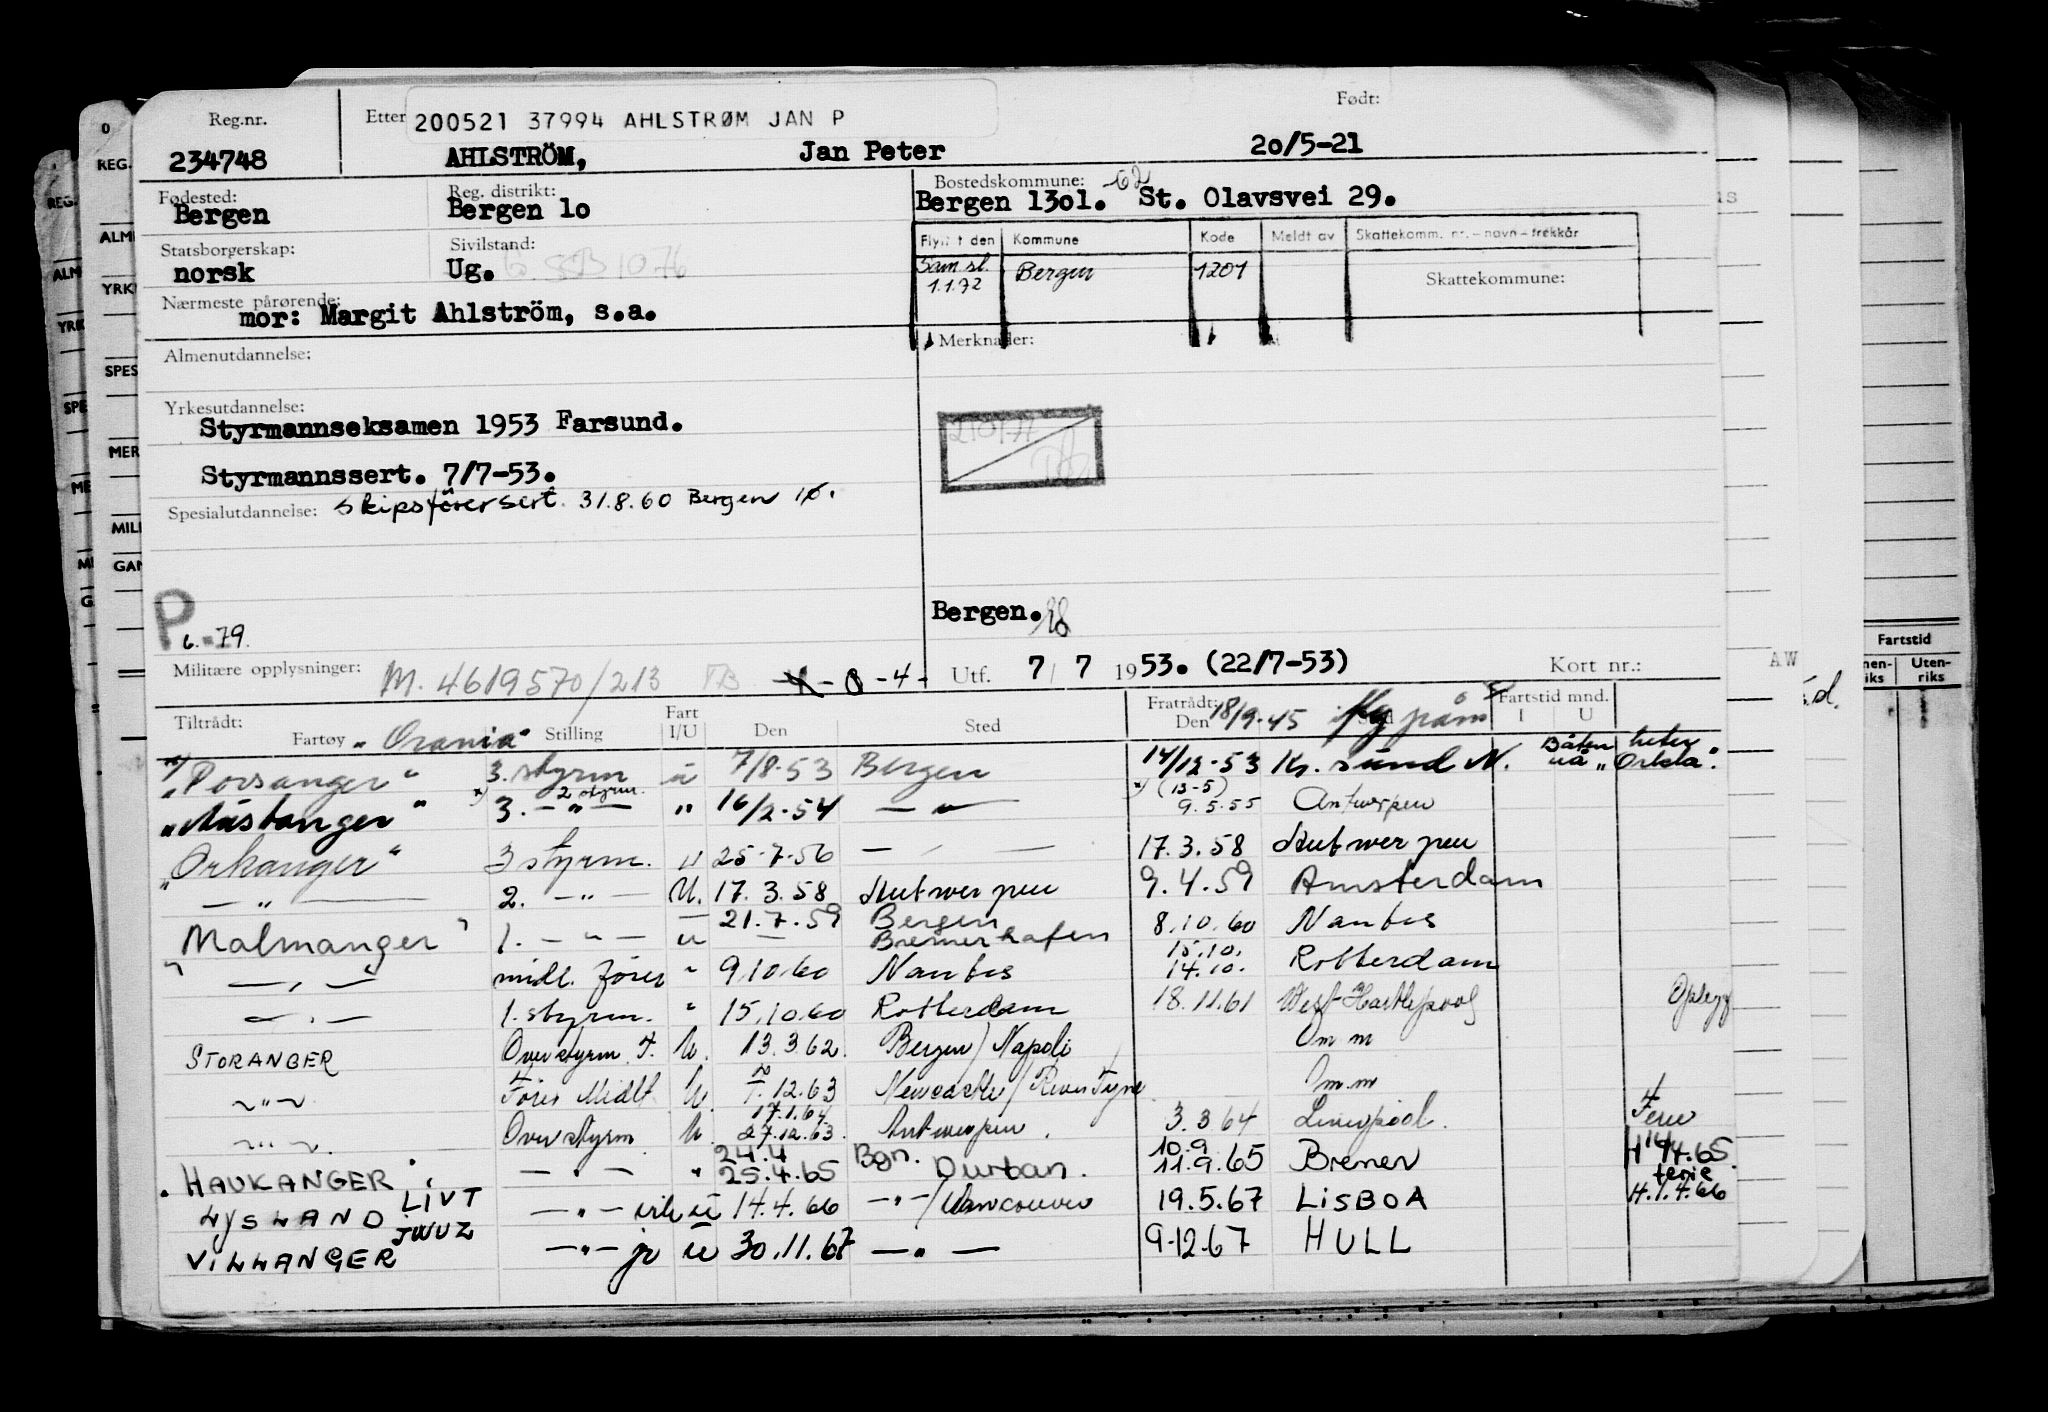 Reg.nr. Etternavn 200521 37994 AHLSTRØM JAN P Født:
234748 AHLSTRÖM, Jan Peter 20/5-21
Fødested: Reg. distrikt: Bostedskommune: -62
Bergen Bergen 10 Bergen 1301. St. Olavsvei 29.
Statsborgerskap: Sivilstand: Flyttet den Kommune Kode Meldt av Skattekomm. nr. - navn - trekkår
norsk Ug. Sam sl. 1.1.72 Bergen 1201 Skattekommune:
Nærmeste pårørende:
mor: Margit Ahlström, s.a.
Almenutdannelse: Merknader:
Yrkesutdannelse:
Styrmannseksamen 1953 Farsund.
Styrmannssert. 7/7-53.
Spesialutdannelse: Skipsförersert. 31.8.60 Bergen 10.
P
6.-79. Bergen.
Militære opplysninger: M. 4619570/213 - 0 - 4 - Utf. 7/7 1953. (22/7-53) Kort nr.:
Tiltrådt: Fart Fratrådt: Fartstid mnd.
Fartøy "Orania" Stilling I/U Den Sted Den 18/9-45 I U
"Porsanger" 3. styrm u 7/8-53 Bergen 14/12-53 Kr. sund N. Båten heter nå "Orkla".
"Austanger" 3. -"- 2 styrm. " 16/2-54 -"- (13-5) 9.5.55 Antwerpen
"Orkanger" 3 styrm. u 25-7-56 - - 17.3.58 Antwerpen
-"- 2. -"- U. 17.3.58 Antwerpen 9.4.59 Amsterdam
"Malmanger" 1. -"- u 21.7.59 Bergen Bremerhafen 8.10.60 Nantes
-"- midl. förer " 9.10.60 Nantes 15.10. 14.10. Rotterdam
-"- 1. styrm. " 15.10.60 Rotterdam 18.11.61 West-Hartlepool Oplegg
STORANGER Overstyrm. F. U. 13.3.62. Bergen/Napoli Om m
-"- Förer Midl. U. 12.63 Newcastle/River Tyne Om.m
-"- Overstyrm U. 17.1.64 27.12.63. Antwerpen. 3.3.64 Liverpool. Ferie
HAUKANGER -"- " 24.4 25.4.65 Bgn. Durban. 10.9 11.9.65 Bremen H 14/4.65. ferie
LYSLAND LIVT -"- u 14.4.66 -"-/Vancouver 19.5.67 LISBOA H.1.4.66
VILLANGER JWUZ -"- u 30.11.67 -"- 9-12.67 HULL